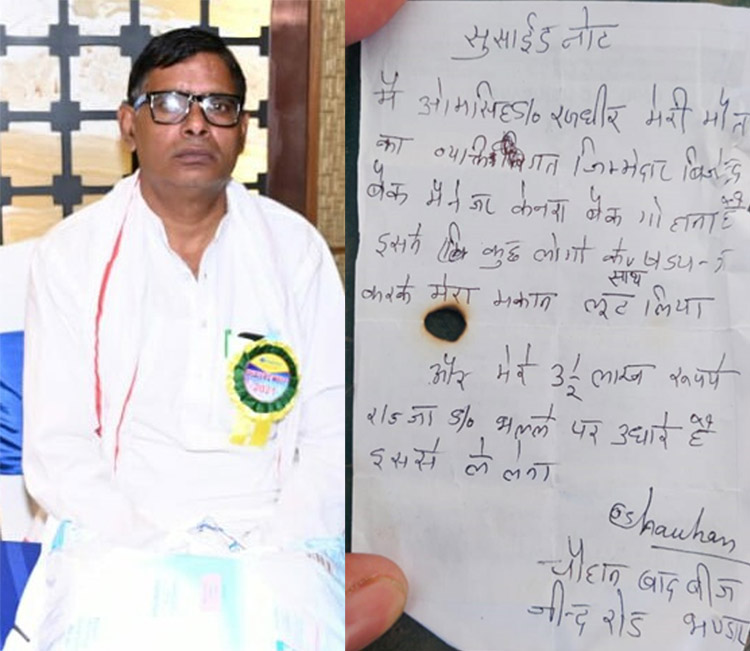 2021
सुसाईड नोट
मै ओमसिंह S/० रणधीर मेरी मौत
का व्यक्तिगत जिम्मेदार बिजेन्द्र
बैंक मैनेजर केनरा बैंक गोहाना है
इसने कुछ लोगो के साथ षडयन्त्र
करके मेरा मकान लूट लिया
और मेरे 3 1/2 लाख रूपये
राजा S/० भलले पर उधारे है
इससे ले लेना
चौहान खाद बीज
जीन्द रोड